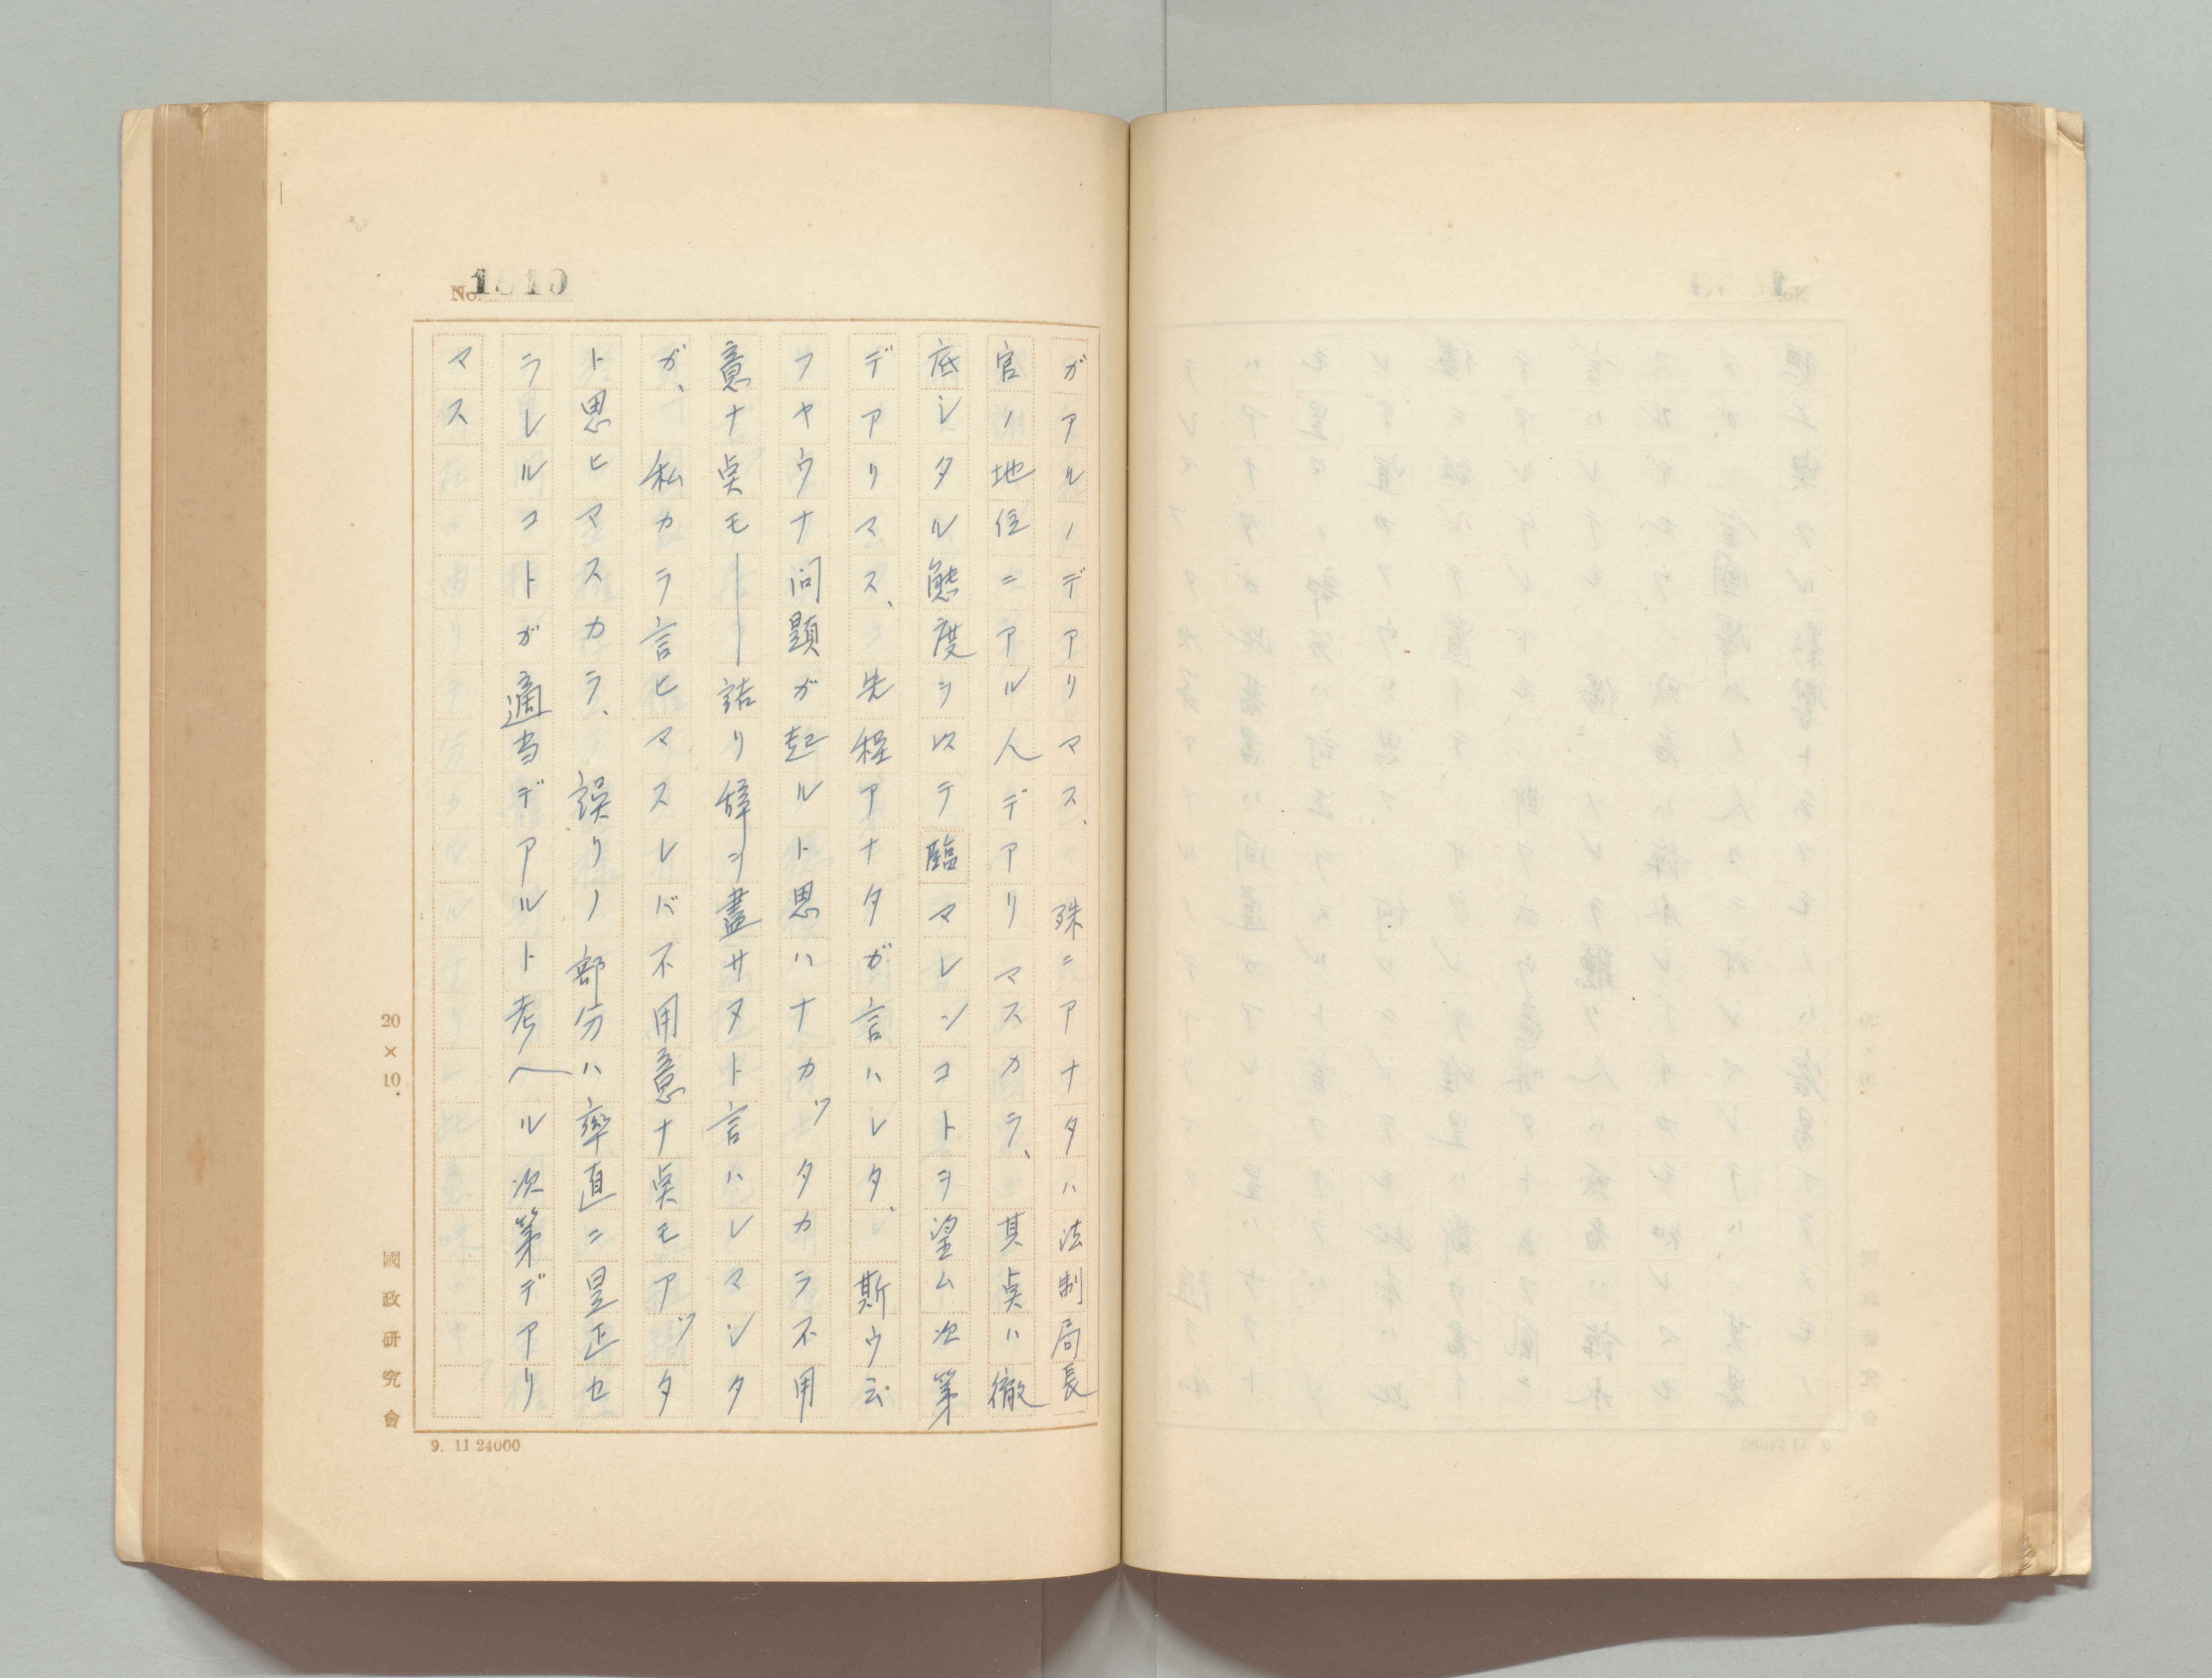 ガアルノデアリマス、殊ニアナタハ法制局長
官ノ地位ニアル人デアリマスカラ、其点ハ徹
底シタル態度ヲ以テ臨マレンコトヲ望ム次第
デアリマス、先程アナタガ言ハレタ、斯ウ云
フヤウナ問題ガ起ルト思ハナカッタカラ不用
意ナ点モ――詰リ辞ヲ盡サヌト言ハレマシタ
ガ、私カラ言ヒマスレバ不用意ナ点モアッタ
ト思ヒマスカラ、誤リノ部分ハ率直ニ是正セ
ラレルコトガ適当デアルト考ヘル次第デアリ
マス
No.
20×10.
國政研究會
9. 11.24000